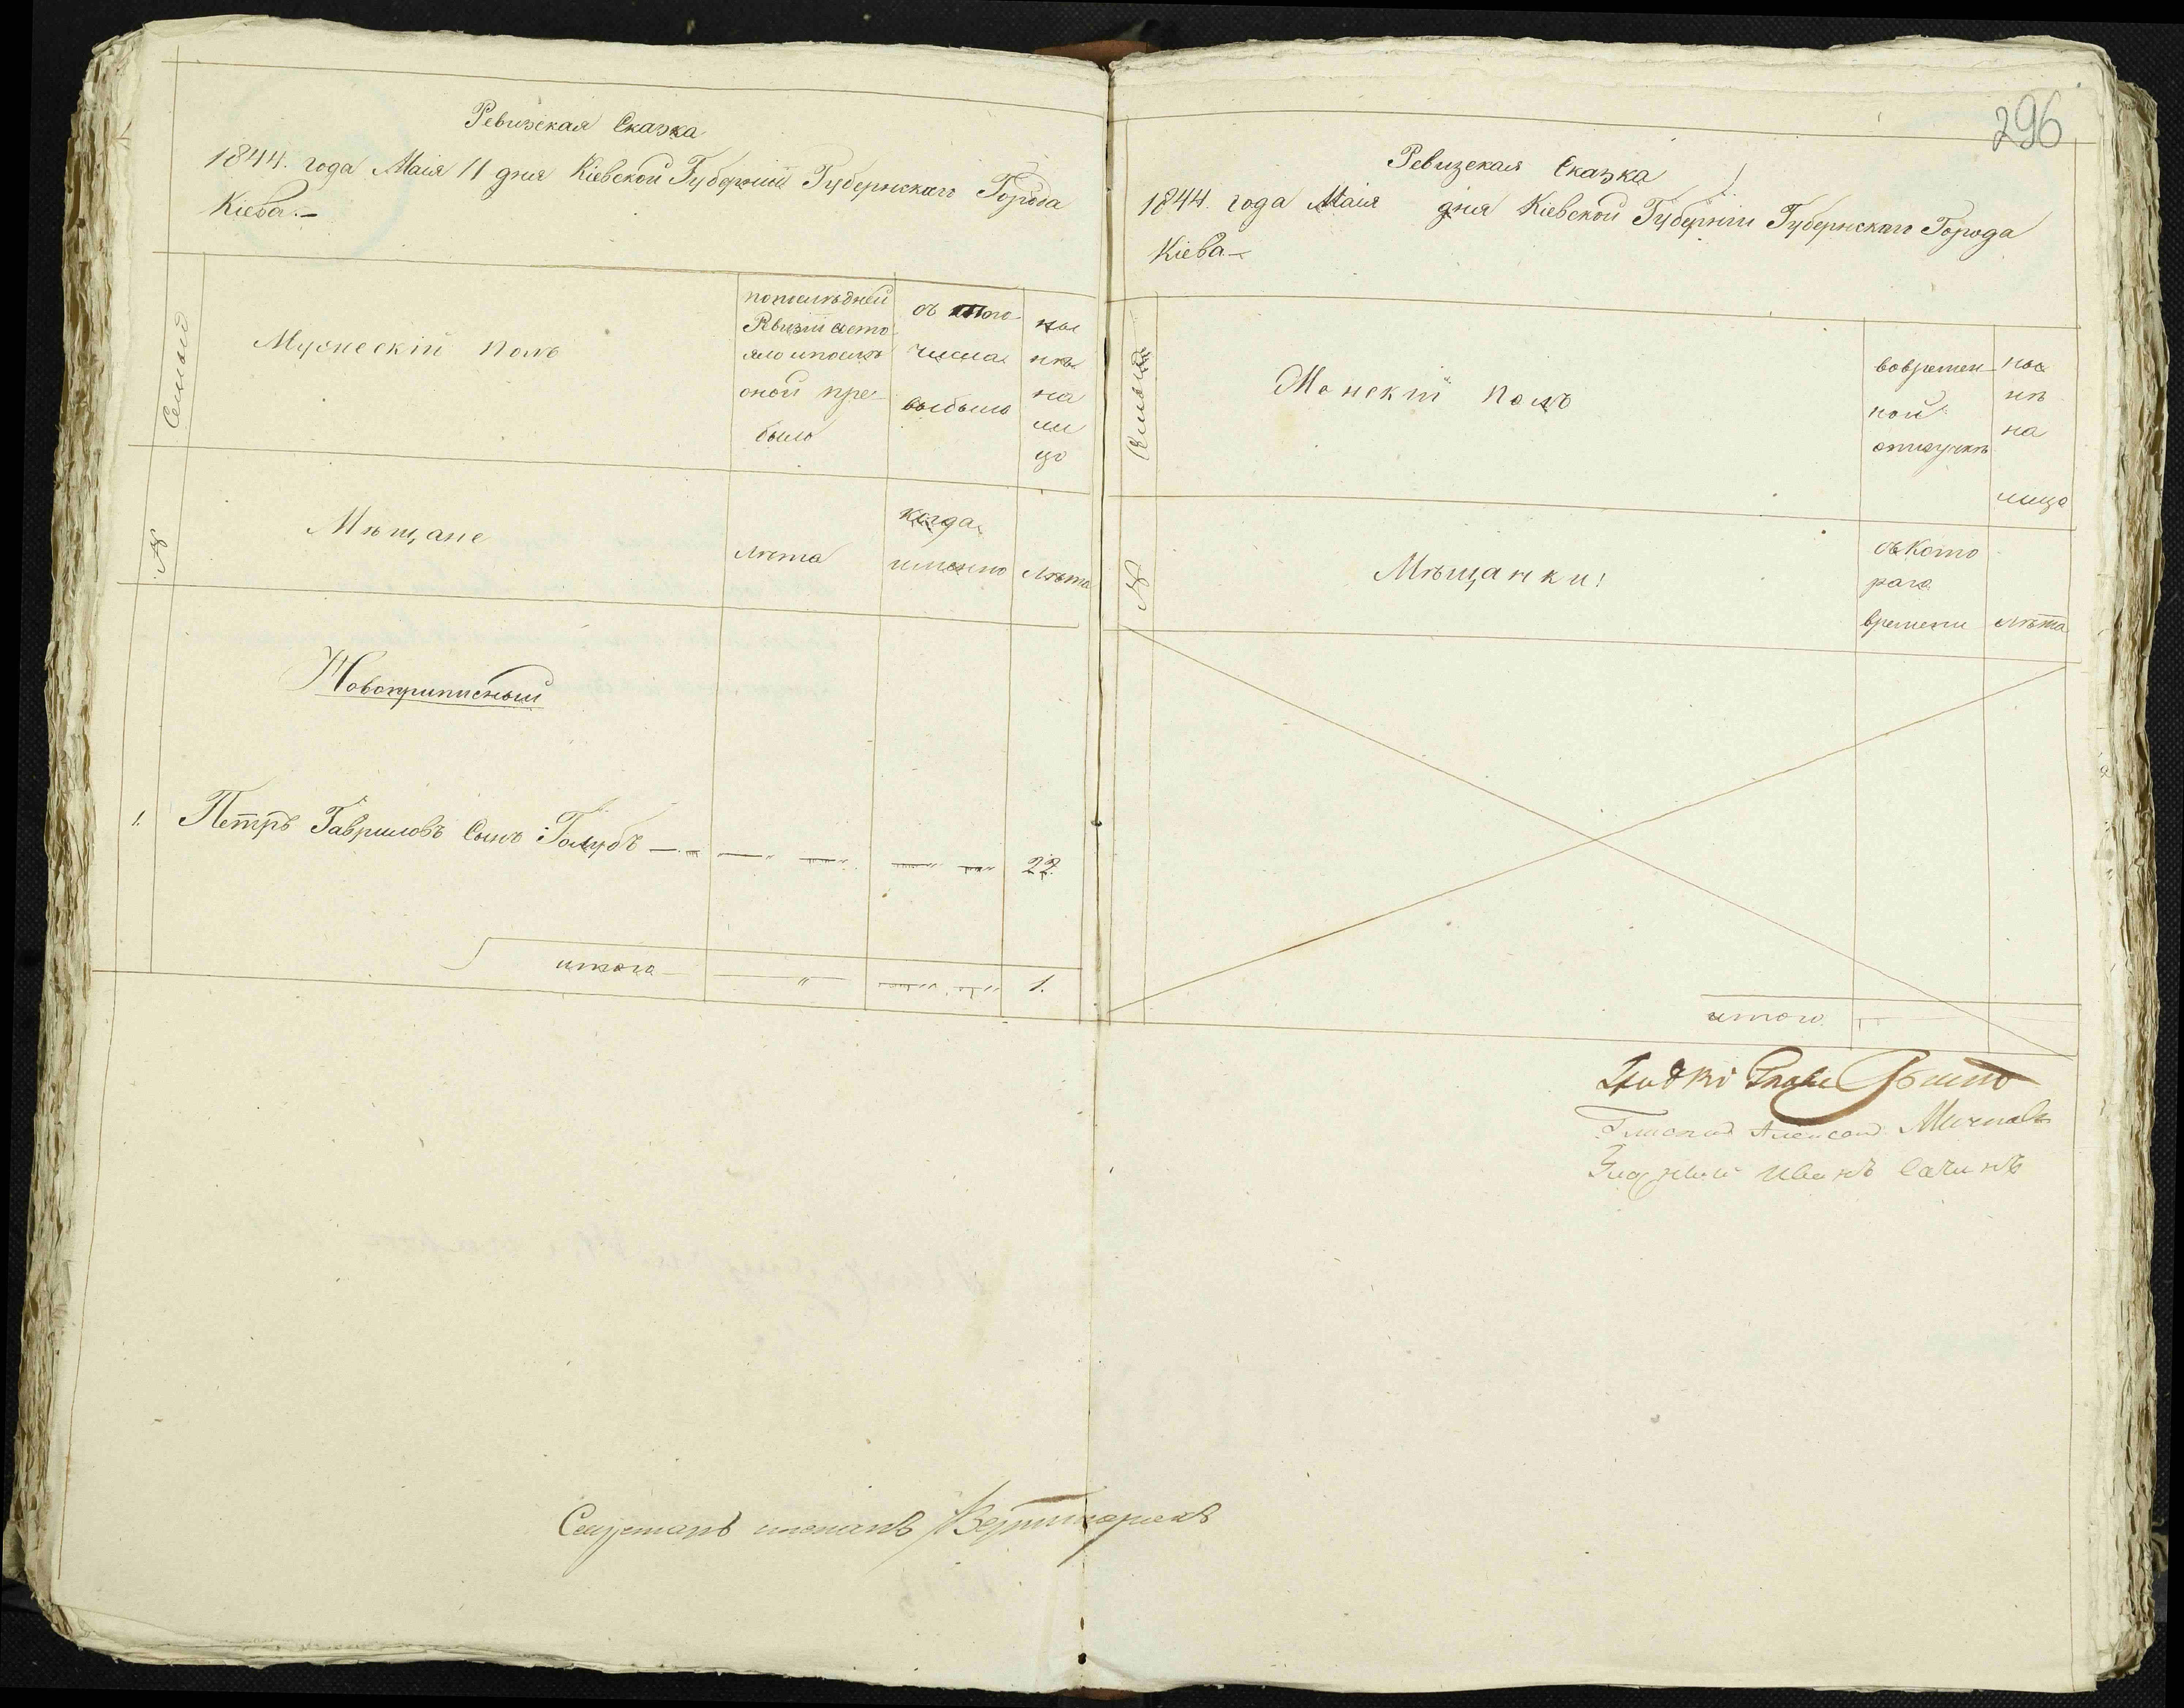 Ревизская Сказка
1844. года Маія 11 дня Кіевской Губерніи Губернскаго Города
Кіева.—
Семьи
Мужескій полъ
последней
Ревизіи состо
яло ипослѣ
оной при
было
съ того
числа
выбыло
ны
нѣ
на
ли
цо
№
Мѣщане
лѣта
когда
именно
лѣта
Новоприписный
1. Петръ Гавриловъ Сынъ Голубъ — 22
итого 1.
296
Ревизская Сказка
1844. года Маія дня Кіевской Губерніи Губернскаго Города
Кіева —
Женскій полъ
вовремен
ной
отлучкѣ
ны
нѣ
на
лицо
№
Мѣщанки
съ Кото
раго
времени
лѣта
итого
Гласный
Гласный Иванъ
Секретарь